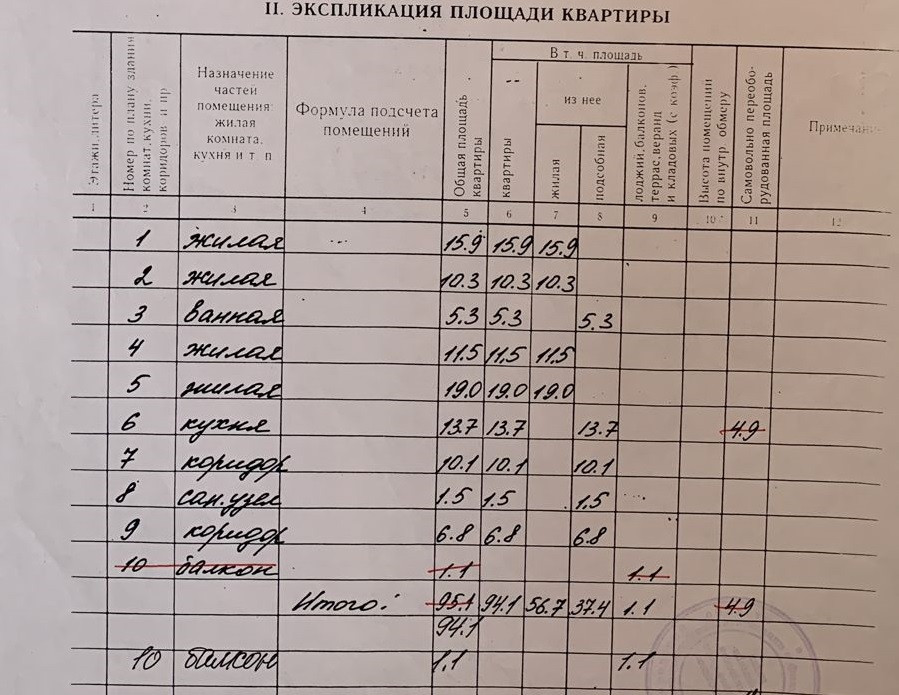 II. ЭКСПЛИКАЦИЯ ПЛОЩАДИ КВАРТИРЫ
Этажи, литера
Номер по плану здания
комнат, кухни,
коридоров и пр
Назначение
частей
помещения:
жилая
комната,
кухня и т п
Формула подсчета
помещений
Общая площадь
квартиры
В т. ч. площадь
--
квартиры
из нее
жилая
подсобная
лоджий, балконов,
террас, веранд
и кладовых (с коэф.)
Высота помещений
по внутр. обмеру
Самовольно переобо-
рудованная площадь
Примечани
1 2 3 4 5 6 7 8 9 10 11 12
1 жилая --- 15.9 15.9 15.9
2 жилая 10.3 10.3 10.3
3 ванная 5.3 5.3 5.3
4 жилая 11.5 11.5 11.5
5 жилая 19.0 19.0 19.0
6 кухня 13.7 13.7 13.7 4.9
7 коридор 10.1 10.1 10.1
8 сан.узел 1.5 1.5 1.5
9 коридор 6.8 6.8 6.8
10 балкон 1.1 1.1
Итого: 95.1 94.1 56.7 37.4 1.1 4.9
94.1
10 балкон 1.1 1.1